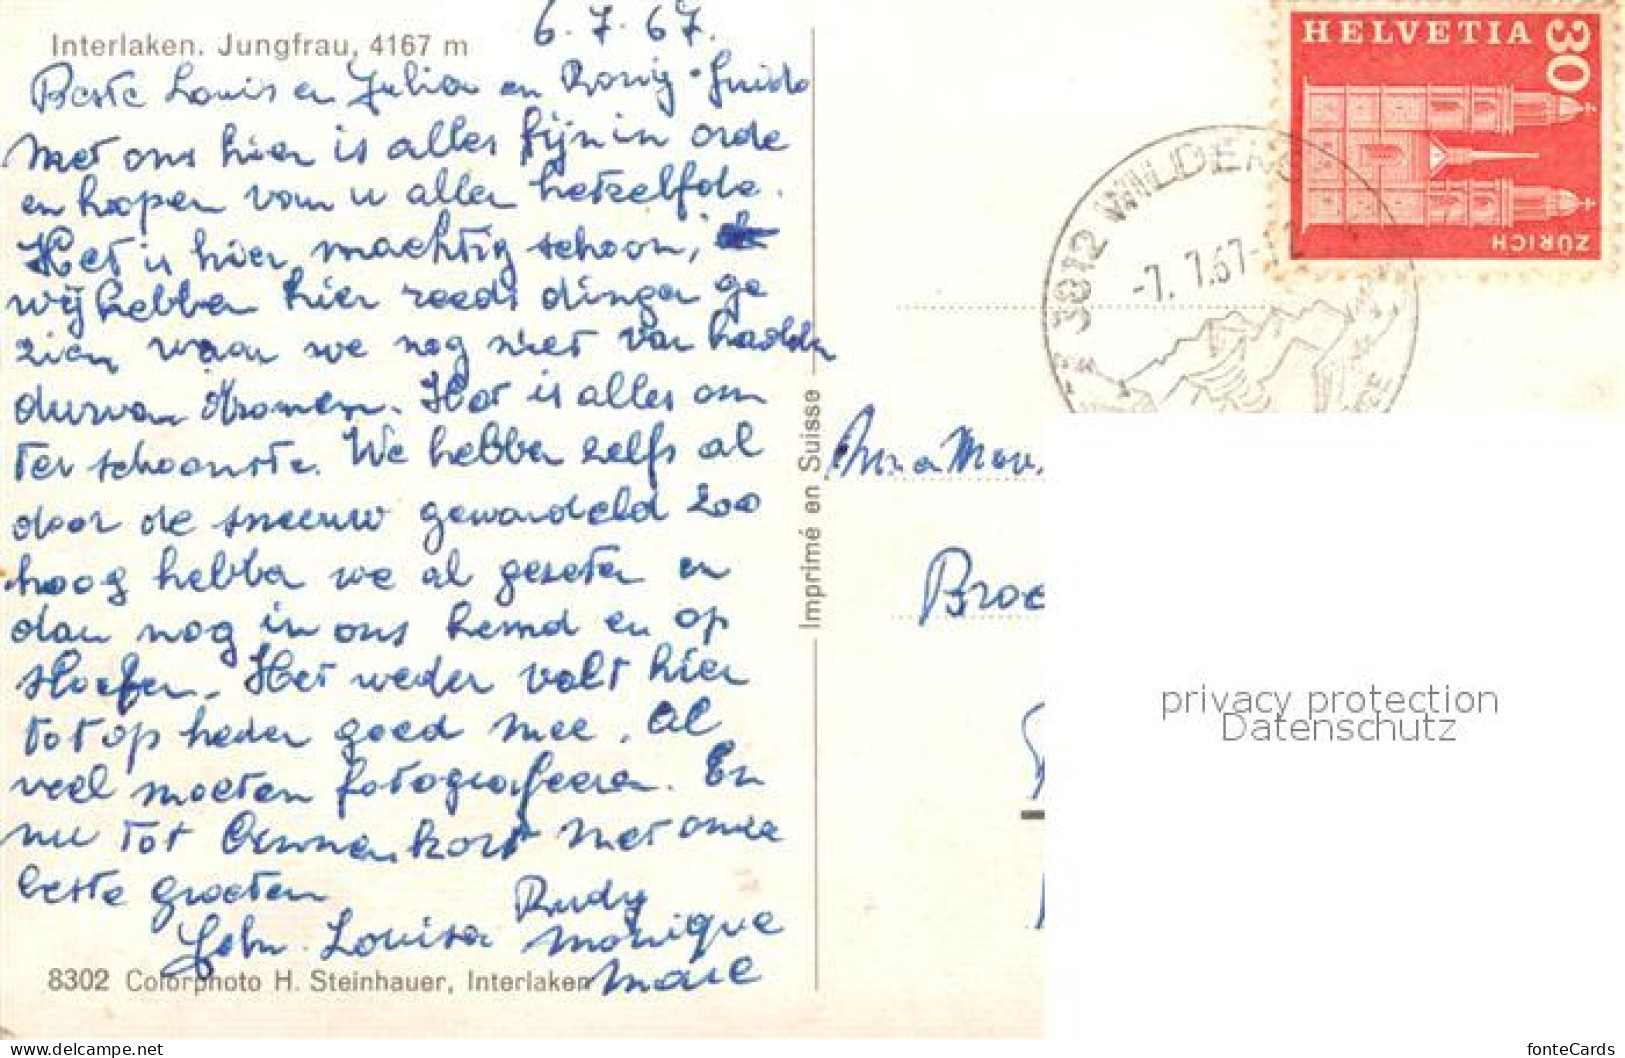 Interlaken. Jungfrau, 4167 m
6.7.67.
Beste Louis en Julia en Ronny · Guido
Met ons hier is alles fijn in orde
en hopen van u allen hetzelfde.
Het is hier machtig schoon,
wij hebben hier reeds dingen ge
zien waar we nog niet van hadden
durven dromen. Het is alles om
ter schoonste. We hebben zelfs al
door de sneeuw gewandeld 200
hoog hebben we al gezeten en
dan nog in ons hemd en op
sloefen. Het weder valt hier
tot op heden goed mee. Al
veel moeten fotograferen. En
nu tot binnen kort met onze
beste groeten
Rudy
John. Louisa Monique
Marc
8302 Colorphoto H. Steinhauer, Interlaken
Imprimé en Suisse
HELVETIA 30
ZÜRICH
3812 WILDERS
-7. 7.67-
Broe
privacy protection
Datenschutz
https://www.delcampe.net
fonteCards